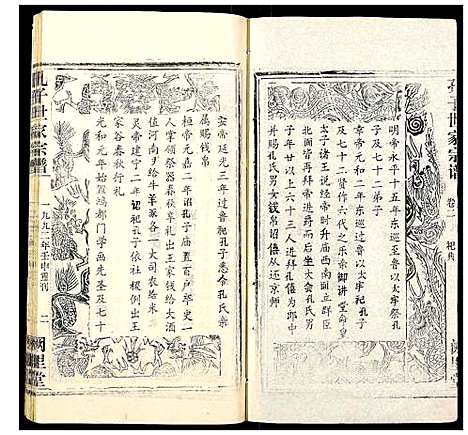 孔子世家宗谱
卷二
祀典
明帝永平十五年东巡至鲁以太牢祭孔子
及七十二弟子
章帝元和二年东巡过鲁以太牢祀孔子
及七十二贤作六代之乐亲御讲堂命皇
太子诸王说经时升庙西南面立群臣
北面皆再拜帝进爵而后坐大会孔氏男
子年廿以上六十三人进拜孔僖为郎中
并赐孔氏男女钱帛诏僖从还京师
安帝延光三年过鲁祀孔子悉会孔氏宗
属赐钱帛
桓帝元嘉二年诏孔子庙百户卒史一
人掌领祭器春秋飨礼出王家钱给大酒
值河南尹给牛羊豕各一大司农给米
灵帝建宁二年祀孔子依社稷例出王
家谷春秋行礼
光和元年始置鸿都门学画先圣及七十
孔子世家宗谱
一九九二年壬申重刊
二
阙里堂